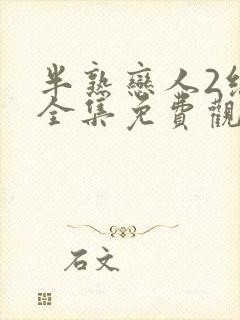 半熟戀人2
全集免費觀
石文